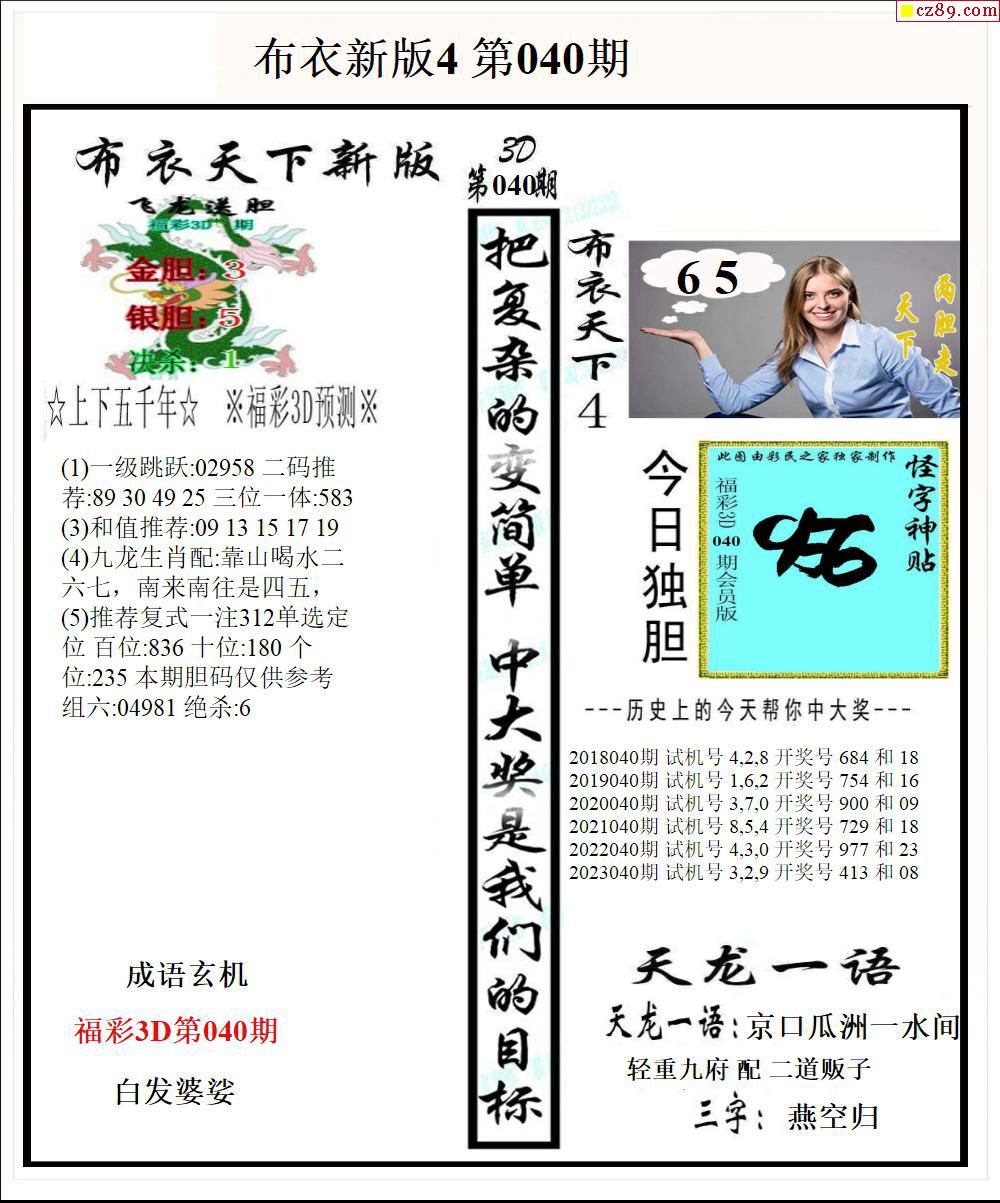 cz89.com
布衣新版4 第040期
布衣天下新版
3D
第040期
飞龙送胆
福彩3D 期
金胆：3
银胆：5
决杀：1
☆上下五千年☆ ※福彩3D预测※
(1)一级跳跃:02958 二码推
荐:89 30 49 25 三位一体:583
(3)和值推荐:09 13 15 17 19
(4)九龙生肖配:靠山喝水二
六七，南来南往是四五，
(5)推荐复式一注312单选定
位 百位:836 十位:180 个
位:235 本期胆码仅供参考
组六:04981 绝杀:6
成语玄机
福彩3D第040期
白发婆娑
把复杂的变简单 中大奖是我们的目标
布衣天下4
6 5
两胆走
天下
今日独胆
此图由彩民之家独家制作
怪字神贴
福彩3D 040 期会员版
---历史上的今天帮你中大奖---
2018040期 试机号 4,2,8 开奖号 684 和 18
2019040期 试机号 1,6,2 开奖号 754 和 16
2020040期 试机号 3,7,0 开奖号 900 和 09
2021040期 试机号 8,5,4 开奖号 729 和 18
2022040期 试机号 4,3,0 开奖号 977 和 23
2023040期 试机号 3,2,9 开奖号 413 和 08
天龙一语
天龙一语:京口瓜洲一水间
轻重九府 配 二道贩子
三字：燕空归